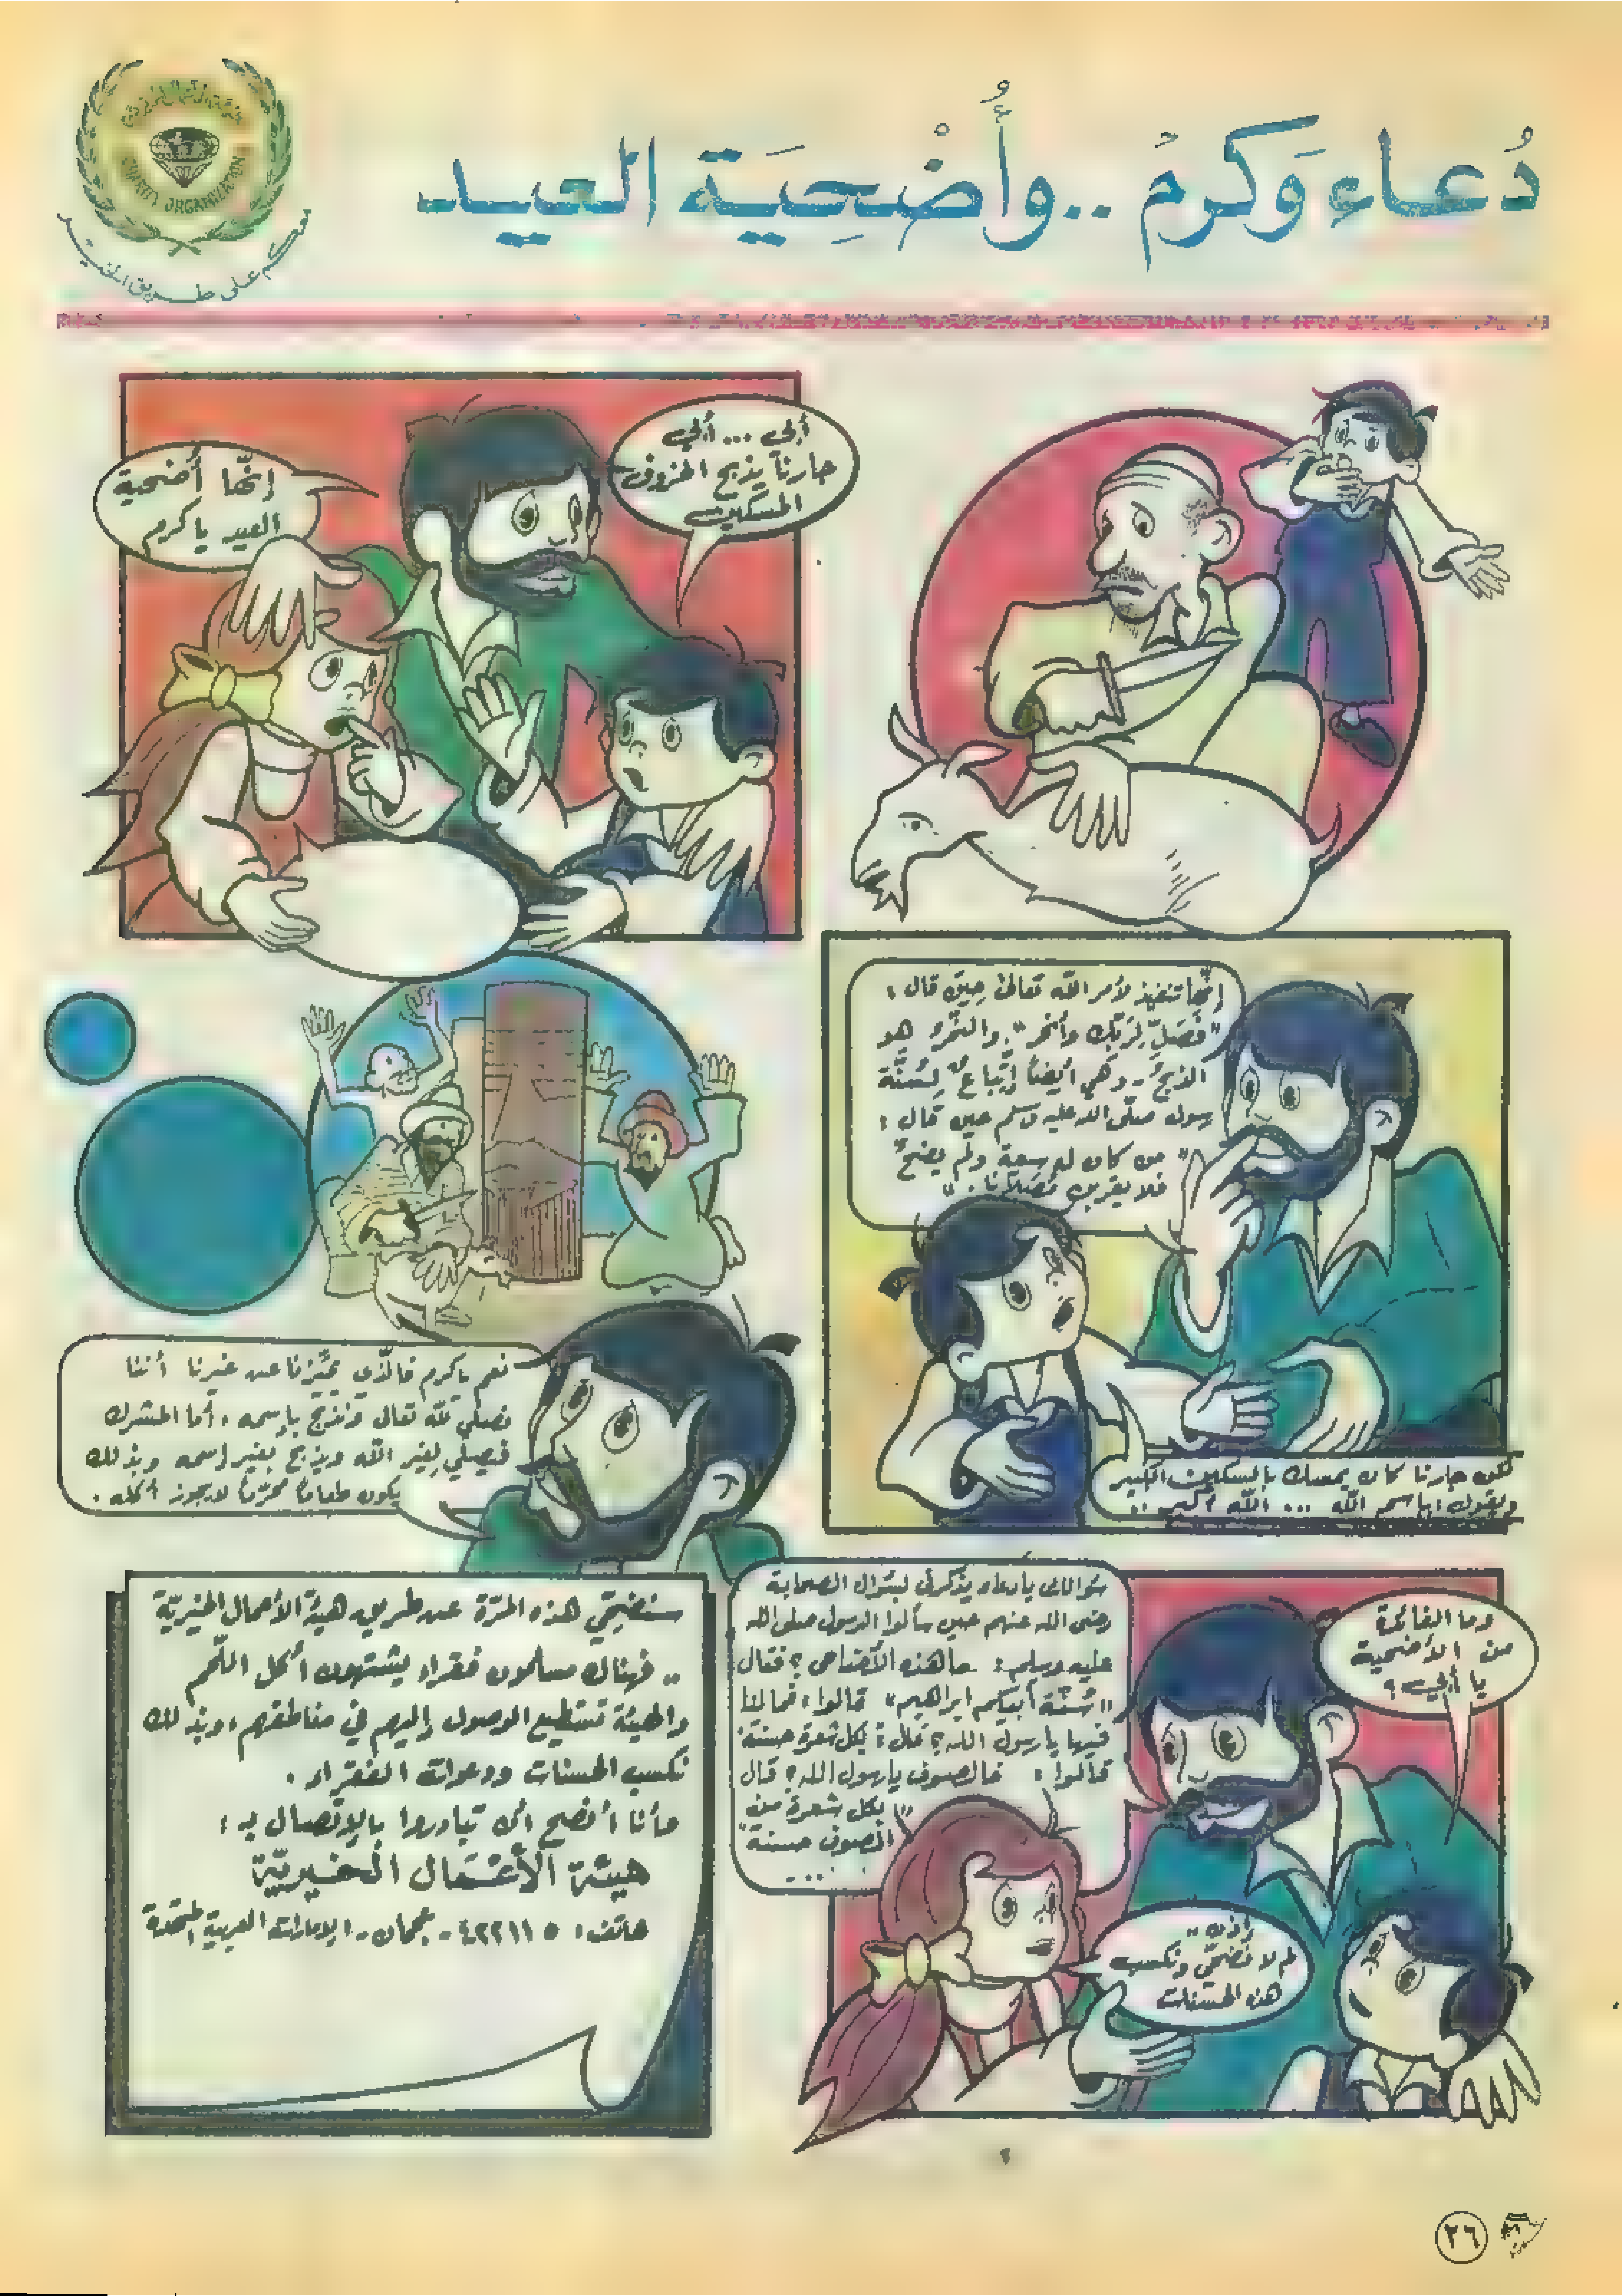 دُعاء وَكرمْ .. وأُضْحِيَة العيد
CHARITY ORGANIZATION
معكم على طريق الخير
أبي ... أبي
جارنا يذبح الخروف
المسكين
إنّها أضحية
العيد يا كرم
إنّها تنفيذ لأمر الله تعالى حين قال :
"فَصَلِّ لِرَبِّكَ وانحر" والنَّحْرُ هو
الذبحُ - وهي أيضاً إتّباعٌ لِسُنَّة
رسول صلّى الله عليه وسلم حين قال :
" من كان له سعة ولم يضحِّ
فلا يقربن مُصَلاَّنا . "
لكن جارنا كان يمسك بالسكين الكبير
ويقول : باسم الله ... الله أكبر !!
نعم ياكرم فالّذي يميّزنا عن غيرنا أننا
نصلي لله تعالى ونذبح بإسمه ، أما المشرك
فيصلي لغير الله ويذبح بغير اسمه وبذلك
يكون طعاماً محرّماً لايجوز أكله .
وما الفائدة
من الأضحية
يا أبي ؟
سؤالك يادعاء يذكرني بسؤال الصحابة
رضي الله عنهم حين سألوا الرسول صلى الله
عليه وسلم : ماهذه الأضاحي ؟ فقال
"سُنّة أبيكم ابراهيم" قالوا : فمالنا
فيها يارسول الله ؟ قال : بكل شعرة حسنة
قالوا : فالصوف يارسول الله ؟ قال
"بكل شعرة من
الصوف حسنة"
....
إذن ..
لم لا نضحّي ونكسب
هذه الحسنات
سنضحّي هذه المرّة عن طريق هيئة الأعمال الخيريّة
.. فهناك مسلمون فقراء يشتهون أكل اللّحم
والهيئة تستطيع الوصول إليهم في مناطقهم ، وبذلك
نكسب الحسنات ودعوات الفقراء .
وأنا أنصح أن تبادروا بالإتّصال بـ :
هيئة الأعْمَال الخيريّة
هاتف : ٤٢٢١١٥ - عجمان - الإمارات العربية المتحدة
٢٦